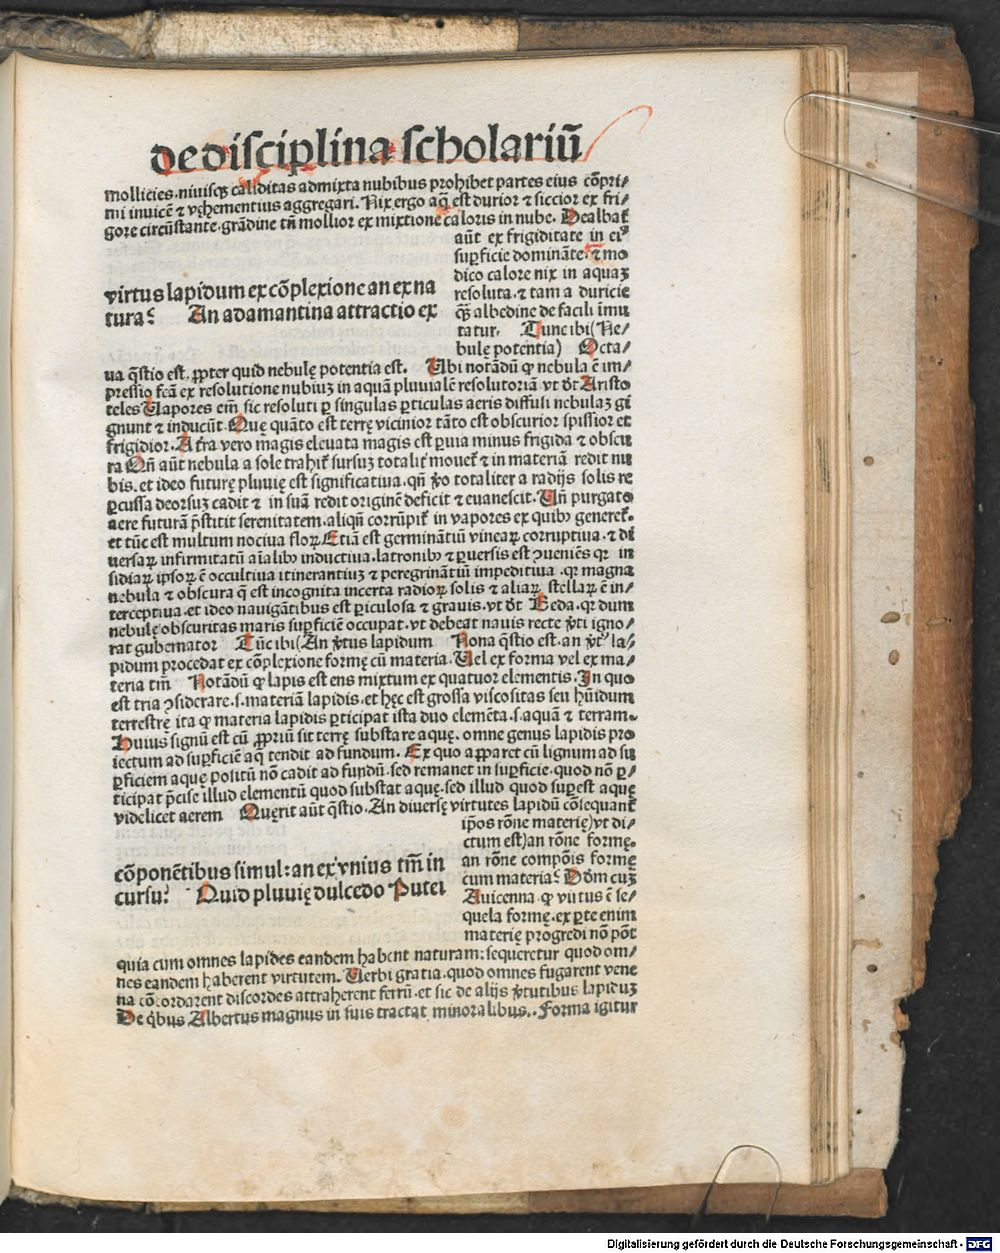 de disciplina scholariū
mollicies. niuisqꝫ caliditas admixta nubibus prohibet partes eius cōpri/
mi inuicē ⁊ vehementius aggregari. Nix ergo aq̄ est durior ⁊ siccior ex fri/
gore circūstante. grādine tn̄ mollior ex mixtione caloris in nube. Dealbat᷑
aūt ex frigiditate in eiꝰ
suꝑficie domināte. ⁊ mo
dico calore nix in aquaꝫ
resoluta. ⁊ tam a duricie
qꝫ̄ albedine de facili imu
tatur. Tunc ibi (Ne/
bulę potentia) Octa/
virtus lapidum ex cōplexione an ex na
tura? An adamantina attractio ex
ua q̄stio est. ꝓpter quid nebulę potentia est. Ubi notādū ꝙ nebula ē im/
pressio fcā ex resolutione nubiuꝫ in aquā pluuialē resolutoriā vt dt̄ Aristo
teles Uapores em̄ sic resoluti ꝑ singulas ꝑticulas aeris diffusi nebulaꝫ gi
gnunt ⁊ inducūt. Que quāto est terrę vicinior tāto est obscurior spissior et
frigidior. A tr̄a vero magis eleuata magis est ꝑuia minus frigida ⁊ obscu
ra Qn̄ aūt nebula a sole trahit᷑ sursuꝫ totalit᷑ mouet᷑ ⁊ in materiā redit nu
bis. et ideo futurę pluuię est significatiua. qn̄ ꝟo totaliter a radijs solis re
ꝑcussa deorsuꝫ cadit ⁊ in suā redit originē deficit ⁊ euanescit. Un̄ purgato
aere futurā p̄stitit serenitatem. aliqn̄ corrūpit᷑ in vapores ex quibꝰ generet᷑.
et tūc est multum nociua floꝝ Etiā est germinātiū vineaꝝ corruptiua. ⁊ di
uersaꝝ infirmitatū aīalibꝰ inductiua. latronibꝰ ⁊ ꝑuersis est ꝯueniēs qꝛ in
sidiaꝝ ipsoꝝ ē occultiua itinerantiuꝫ ⁊ peregrinātiū impeditiua. qꝛ magna
nebula ⁊ obscura q̄ est incognita incerta radioꝝ solis ⁊ aliaꝝ stellaꝝ ē in/
terceptiua. et ideo nauigātibus est ꝑiculosa ⁊ grauis. vt dt̄ Beda. qꝛ dum
nebulę obscuritas maris suꝑficiē occupat. vt debeat nauis recte ꝟti igno/
rat gubernator Tūc ibi (An ꝟtus lapidum Nona q̄stio est. an ꝟtꝰ la/
pidum procedat ex cōplexione formę cū materia. Uel ex forma vel ex ma/
teria tm̄ Notādū ꝙ lapis est ens mixtum ex quatuor elementis. In quo
est tria ꝯsiderare. s. materiā lapidis. et hęc est grossa viscositas seu hūidum
terrestrę ita ꝙ materia lapidis ꝑticipat ista duo elemēta. s. aquā ⁊ terram.
Huius signū est cū ꝓpriū sit terrę substare aquę. omne genus lapidis pro
iectum ad suꝑficiē aq̄ tendit ad fundum. Ex quo apparet cū lignum ad su
ꝑficiem aquę positū nō cadit ad fundū. sed remanet in suꝑficie. quod nō ꝑ/
ticipat p̄cise illud elementū quod substat aquę. sed illud quod suꝑest aquę
videlicet aerem Quęrit aūt q̄stio. An diuersę virtutes lapidū cōsequant᷑
ip̄os rōne materię) vt di/
ctum est) an rōne formę.
an rōne compōis formę
cum materia? Dōm cuꝫ
Auicenna. ꝙ virtus ē se/
quela formę. ex ꝑte enim
materię progredi nō pōt
cōponētibus simul: an ex vnius tm̄ in
cursu? Quid pluuię dulcedo Putei
quia cum omnes lapides eandem habent naturam: sequeretur quod om/
nes eandem haberent virtutem. Uerbi gratia. quod omnes fugarent vene
na cōcordarent discordes attraherent ferrū. et sic de alijs ꝟtutibus lapiduꝫ
De q̇bus Albertus magnus in suis tractat minoralibus. Forma igitur
Digitalisierung gefördert durch die Deutsche Forschungsgemeinschaft - DFG